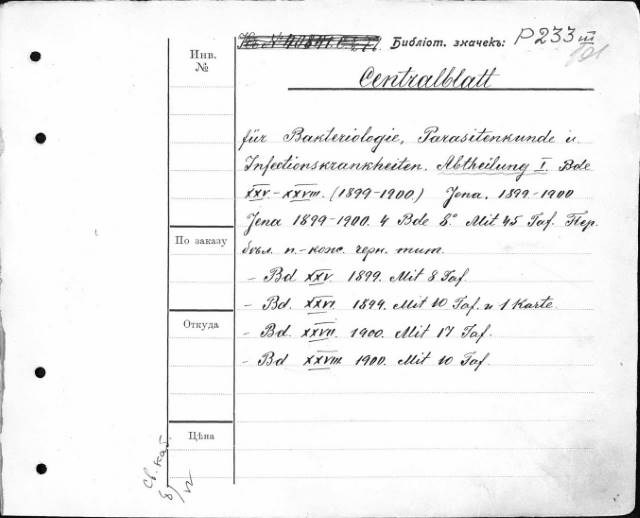 Библіот. значекъ: P233 III
Инв.
№
Centralblatt
für Bakteriologie, Parasitenkunde u.
Infectionskrankheiten. Abtheilung I. Bde
XXV-XXVIII. (1899-1900) Jena. 1899-1900
Jena 1899-1900. 4 Bde 8° Mit 45 Taf. Пер.
п.-кож. черн. тит.
По заказу
- Bd XXV. 1899. Mit 8 Taf.
- Bd. XXVI. 1899. Mit 10 Taf. u 1 Karte
Откуда
- Bd. XXVII. 1900. Mit 17 Taf.
- Bd XXVIII. 1900. Mit 10 Taf.
Цѣна
Св. кат.